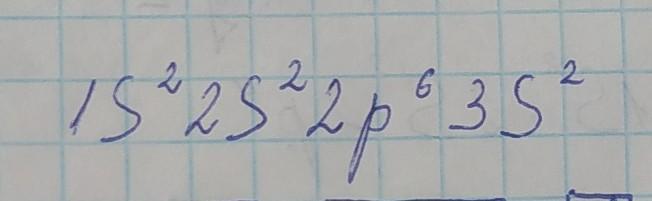 1S²2S²2p⁶3S²